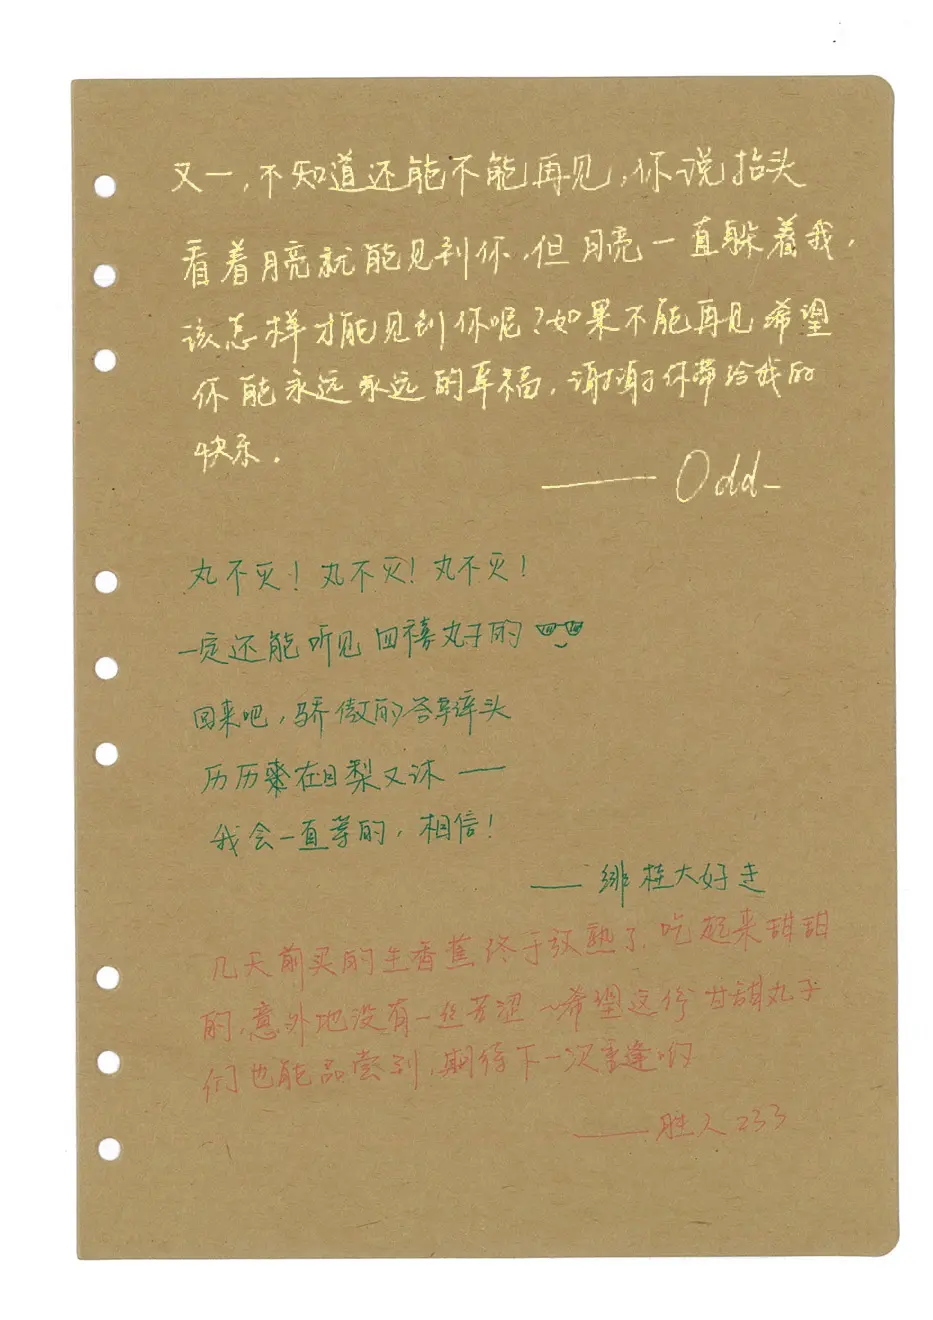 又一,不知道还能不能再见,你说抬头
看着月亮就能见到你,但月亮一直躲着我,
该怎样才能见到你呢?如果不能再见希望
你能永远永远的幸福,谢谢你带给我的
快乐.
—— Odd_
丸不灭!丸不灭!丸不灭!
一定还能听见四禧丸子的
回来吧,骄傲的
历历在目梨又沐 ——
我会一直等的,相信!
—— 绯桂大好き
几天前买的生香蕉终于放熟了,吃起来甜甜
的,意外地没有一丝苦涩~希望这份甘甜丸子
们也能品尝到,期待下一次重逢哟
—— 胜人233